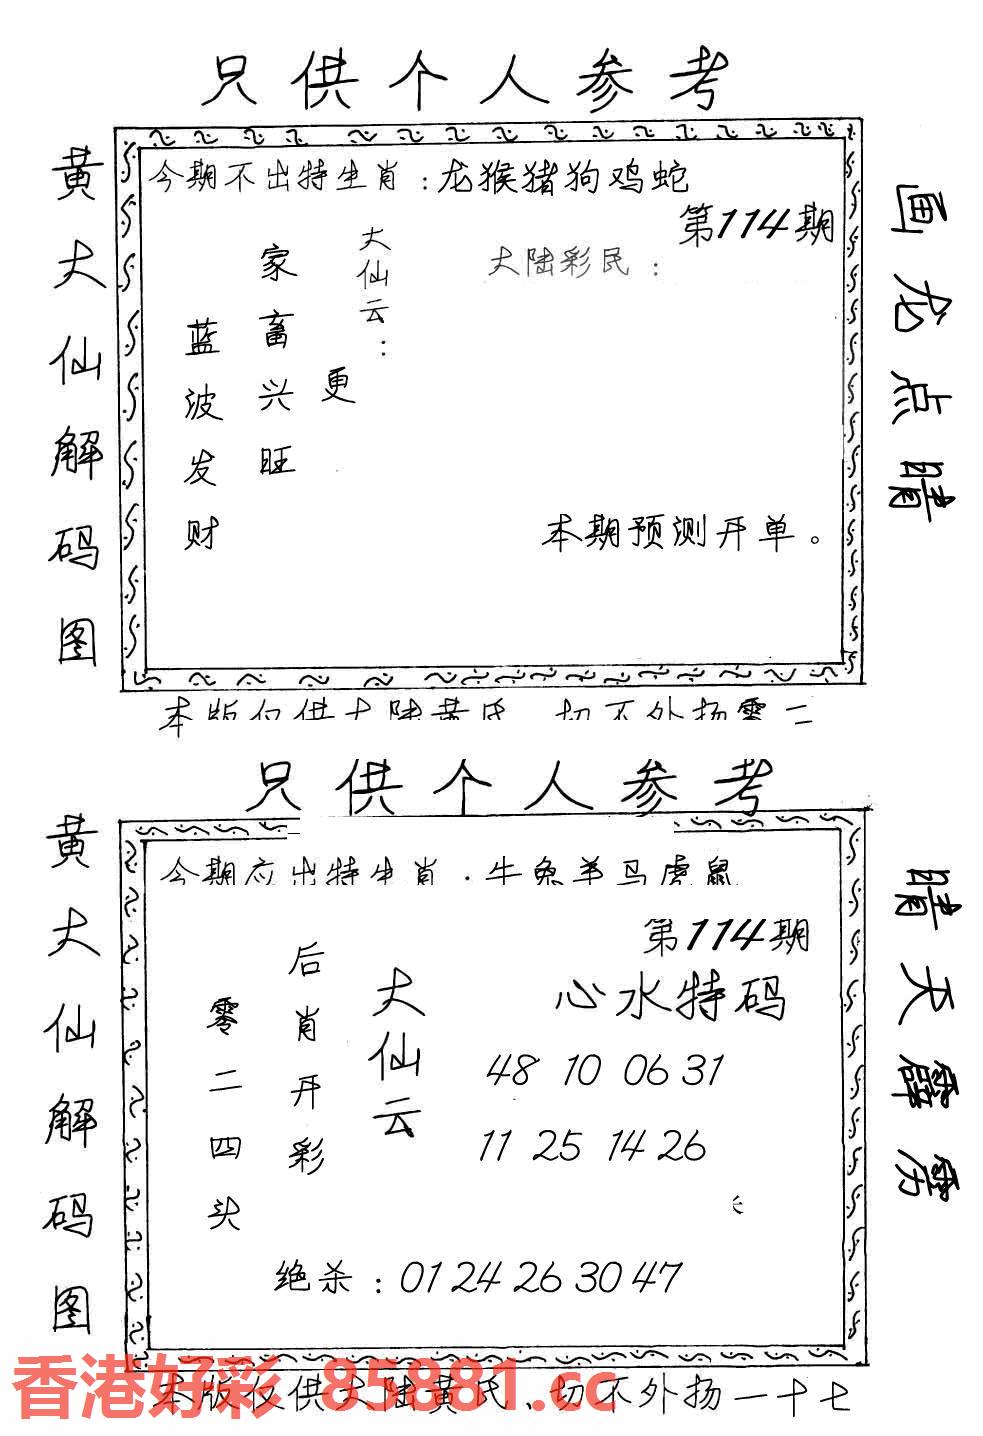 只供个人参考
黄大仙解码图
今期不出特生肖:龙猴猪狗鸡蛇
第114期
大陆彩民:
大仙云:
更
家畜兴旺
蓝波发财
本期预测开单。
画龙点睛
本版仅供大陆黄氏、切不外扬零二
只供个人参考
黄大仙解码图
今期应出特生肖:牛兔羊马虎鼠
第114期
心水特码
大仙云
后肖开彩
零二四头
48 10 06 31
11 25 14 26
绝杀:01 24 26 30 47
晴天霹雳
香港好彩 85881.cc
本版仅供大陆黄氏、切不外扬一十七